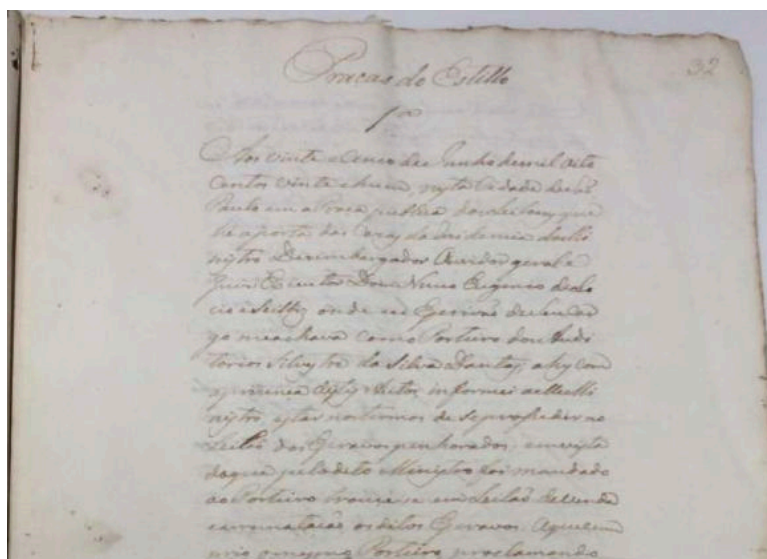 Pracas do Estillo
32
1ª
Aos vinte e Cinco de Junho de mil oito
centos vinte e hum, nesta Cidade de Sam
Paulo em a Praca publica dos Leiloens que
he a porta das Cazas da Rezidencia do Mi
nistro Dezembargador Ouvidor geral e
Juis Executor Dom Nuno Eugenio de Lo
cio e Seilbz onde eu Escrivão de seu car
go me achava com o Porteiro dos Audi
torios Silvestre da Silva Dantas, ahy com
a prezença destes Autos informei ao Mi
nistro, estar nos termos de se proseder no
Leilão dos Escravos penhorados, em vista
do que pelo dito Ministro foi mandado
ao Porteiro trouxe-se em Leilão de venda
e arrematação os ditos Escravos. Aquecum
prio o mesmo Porteiro, proclamando